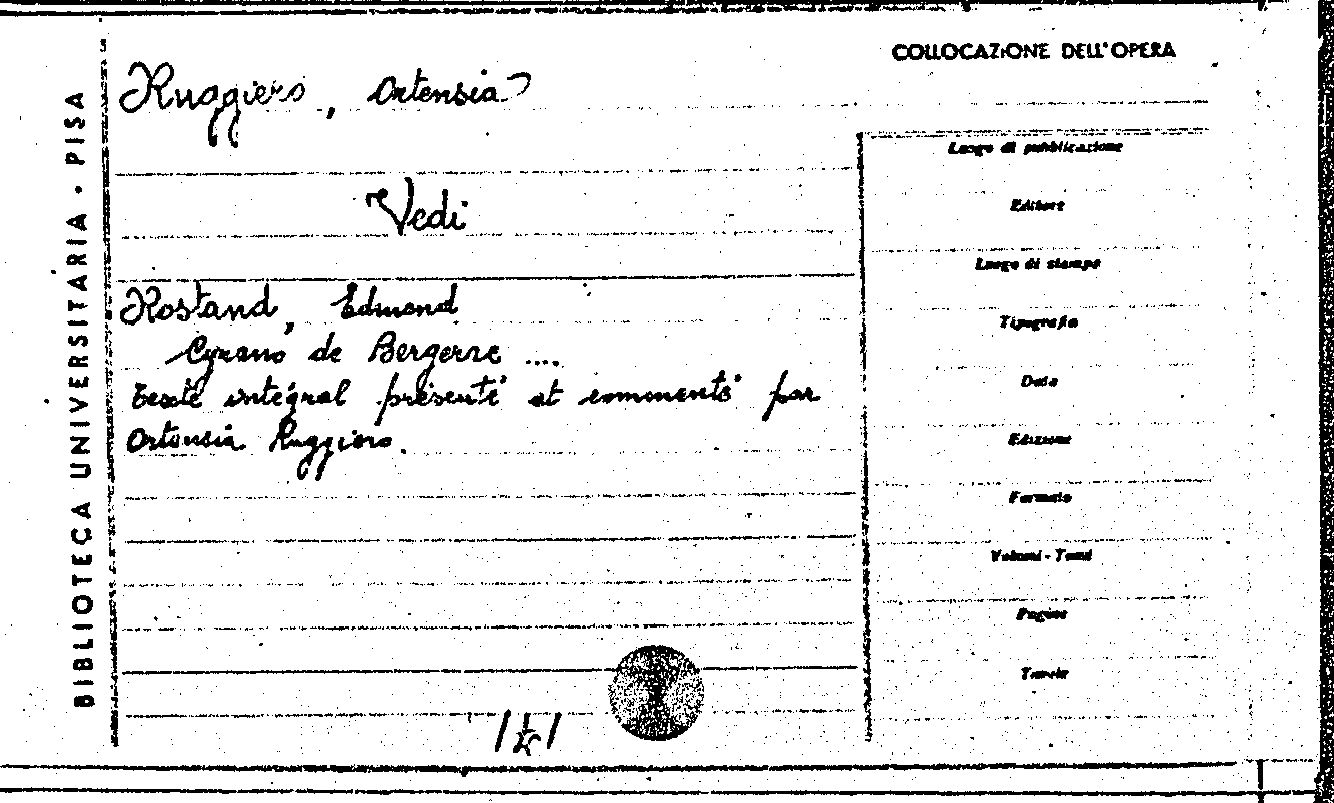 COLLOCAZIONE DELL'OPERA
BIBLIOTECA UNIVERSITARIA · PISA
Ruggiero, Ortensia
Vedi
Rostand, Edmond
Cyrano de Bergerac ....
texte intégral présenté et commenté par
Ortensia Ruggiero.
Luogo di pubblicazione
Editore
Luogo di stampa
Tipografia
Data
Edizione
Formato
Volumi - Tomi
Pagine
Tavole